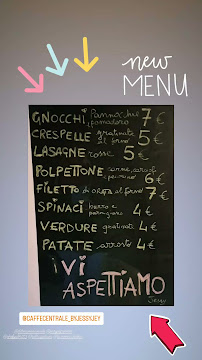 new
MENU
GNOCCHI Pannocchie 7€
pomodoro
CRESPELLE gratinate 5€
al forno
LASAGNE rosse 5€
POLPETTONE carne, carote
e pecorino 6€
FILETTO di orata al forno 7€
SPINACI burro e
parmigiano 4€
VERDURE gratinate 4€
PATATE arrosto 4€
VI
ASPETTIAMO
@CAFFECENTRALE_BYJESSYJEY